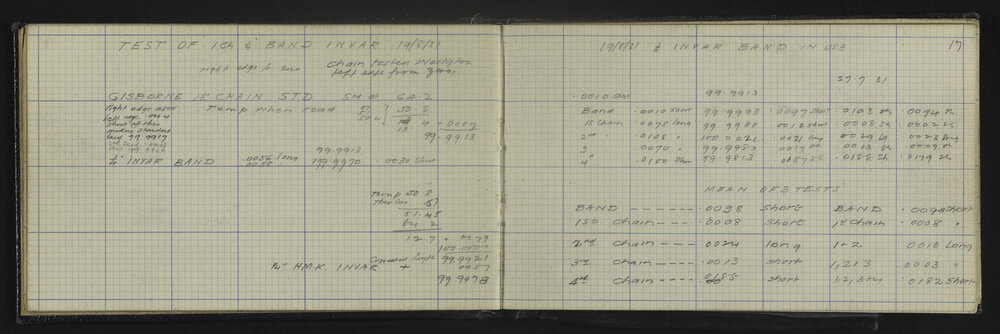 TEST OF 1Ch ¼" BAND INVAR 19/8/31
right edge for zero
Chain tested Wellington
left edge from zero
GISBORNE 1st CHAIN STD Std at 64.2
right edge used Temp when read 50.8
left edge .0004
short of this
making standard
99.9917
13.4 = .0087
99.9913
99.9913
¼" INVAR BAND .0056 long 99.9970 .0030 Short
.0058
Temp 50.8
51.45
64.2
12.7 = .0079
100.0000
Corrected length 99.9921
¼" HMK INVAR + 0057
99.9978
19/8/31 ¼ INVAR BAND IN USE 17
27.7.31
.0010 Short 99.9913
Band .0010 Short 99.9903 .0097 Short .0103 sh .0094 sh
1st Chain .0075 long 99.9988 .0012 short .0008 sh .0002 sh
2nd " .0108 " 100.0021 .0021 long .0029 lg .0023 long
3 .0070 " 99.9983 .0017 sh .0013 sh .0009 sh
4th .0100 Short 99.9813 .0187 sh .0188 sh .0179 sh
MEAN OF 3 TESTS
BAND ------ .0098 Short BAND .0098 Short
1st Chain ---- .0008 Short 1st Chain .0008 "
2nd Chain ---- .0024 long 1-2 .0016 Long
3rd Chain ---- .0013 short 1,2,3 .0003 "
4th Chain ---- .0185 short 1,2,3,4 .0182 Short